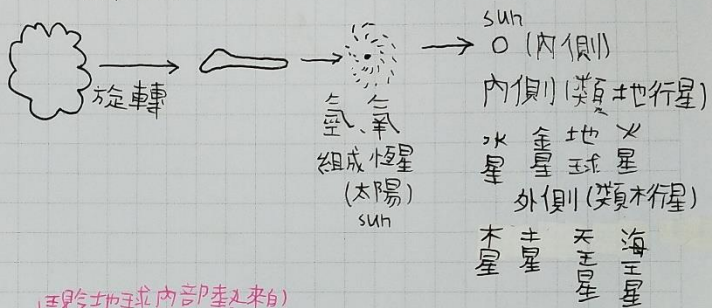 旋轉
氫、氧
組成恆星
(太陽)
sun
sun
O (內側)
內側(類地行星)
水星 金星 地球 火星
外側(類木行星)
木星 土星 天王星 海王星
地球內部熱來自)